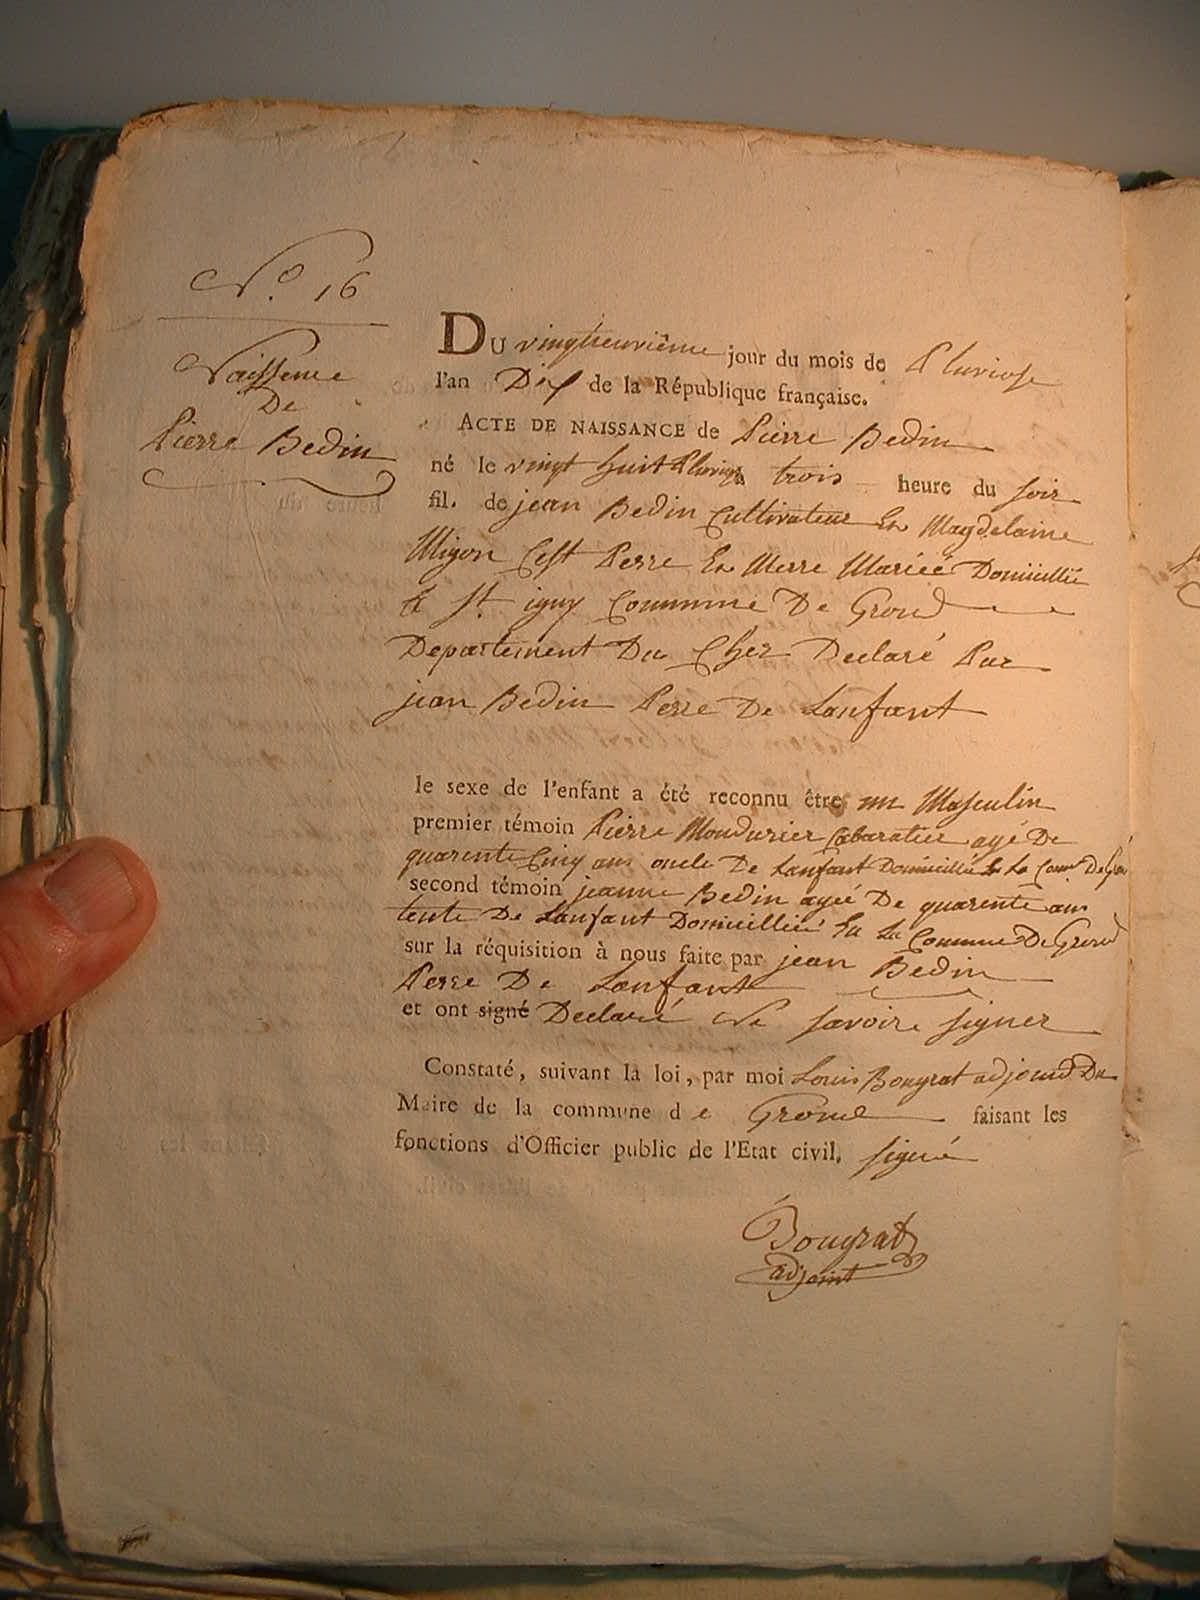 N.o 16
Naissence
De
Pierre Bedin
DU vingtneuvième jour du mois de Pluviose
l'an Dix de la République française.
ACTE DE NAISSANCE de Pierre Bedin
né le vingt huit Pluviose trois heure du soir
fil. de jean Bedin Cultivateur En Magdelaine
Migon Cest Perre En Merre Mariée Domicillié
A St igny Commune De
Departement Du Cher Declaré Par
jean Bedin Perre De Lanfant
le sexe de l'enfant a été reconnu être un Masculin
premier témoin Pierre Cabaratier agé De
quarente Cinq ans oncle De Lanfant Domicillié
second témoin jeanne Bedin agée De quarente ans
tente De Lanfant Domicilliée En La Commune De
sur la réquisition à nous faite par jean Bedin
Perre De Lanfant
et ont signé Declaré Ne savoire signer
Constaté, suivant la loi, par moi Louis Bougrat adjoind Du
Maire de la commune d e faisant les
fonctions d'Officier public de l'Etat civil. signé
Bougrat
adjoint